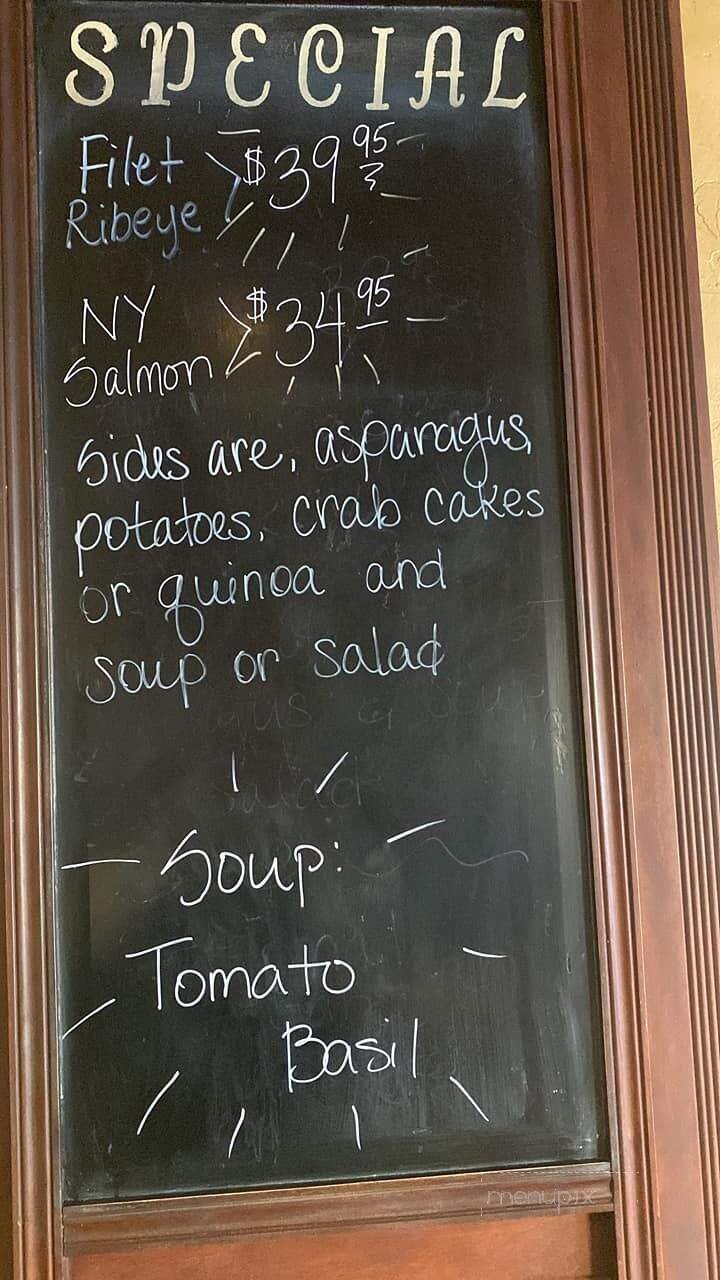 SPECIAL
Filet
Ribeye
$39 95
NY
Salmon
$34 95
Sides are, asparagus,
potatoes, crab cakes
or quinoa and
soup or salad
Soup:
Tomato
Basil
menupix